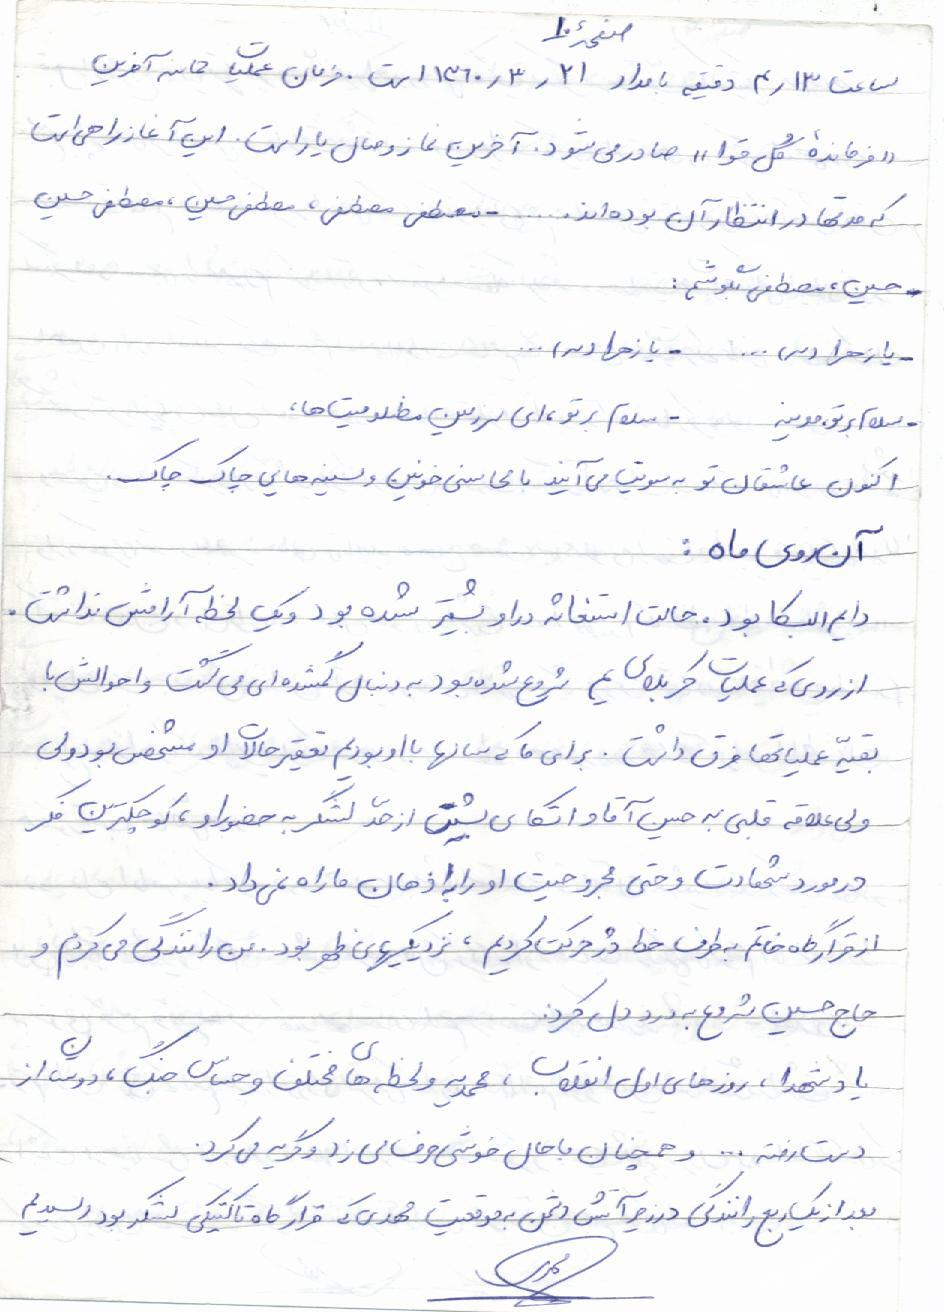 صفحهٔ ۱۰
ساعت ۱۳ر۴ دقیقه بامداد ۲۱ر۳ر۱۳۶۰ است. فرمان عملیات حماسه آفرین
«فرماندهٔ کُل قوا» صادر می‌شود. آخرین نماز وصال یار است. این آغاز راهی است
که مدتها در انتظار آن بوده‌اند. .... - مصطفی مصطفی، مصطفی حسین، مصطفی حسین
- حسین، مصطفی بگوشم:
- یا زهرا (س) ... - یا زهرا (س) ...
- سلام بر تو مدینه - سلام بر تو، ای سرزمین مظلومیت‌ها،
اکنون عاشقان تو به سویت می‌آیند با محاسنی خونین و سینه‌هایی چاک چاک.
آن روی ماه :
دایم البکا بود. حالت استغاثه در او بیشتر شده بود و یک لحظه آرامش نداشت.
از روزی که عملیات کربلای شروع شده بود به دنبال گمشده‌ای می‌گشت و احوالش با
بقیّه عملیاتها فرق داشت. برای ما که سالها با او بودیم تغییر حالات او مشخص بود ولی
ولی علاقه قلبی به حسین آقا و اتکای بیش از حدّ لشگر به حضور او، کوچکترین فکر
در مورد شهادت و حتی مجروحیت او را به اذهان ما راه نمی‌داد.
از قرارگاه خاتم به طرف خط حرکت کردیم، نزدیکیهای ظهر بود. من رانندگی می‌کردم و
حاج حسین شروع به درد دل کرد:
یاد شهدا، روزهای اول انقلاب، محمدیه و لحظه‌های مختلف و حساس جنگ، دوستان از
دست رفته ... و همچنان با حال خوشی حرف می‌زد و گریه می‌کرد.
بعد از یک ربع رانندگی در زیر آتش دشمن به موقعیت مهدی که قرارگاه تاکتیکی لشگر بود رسیدیم